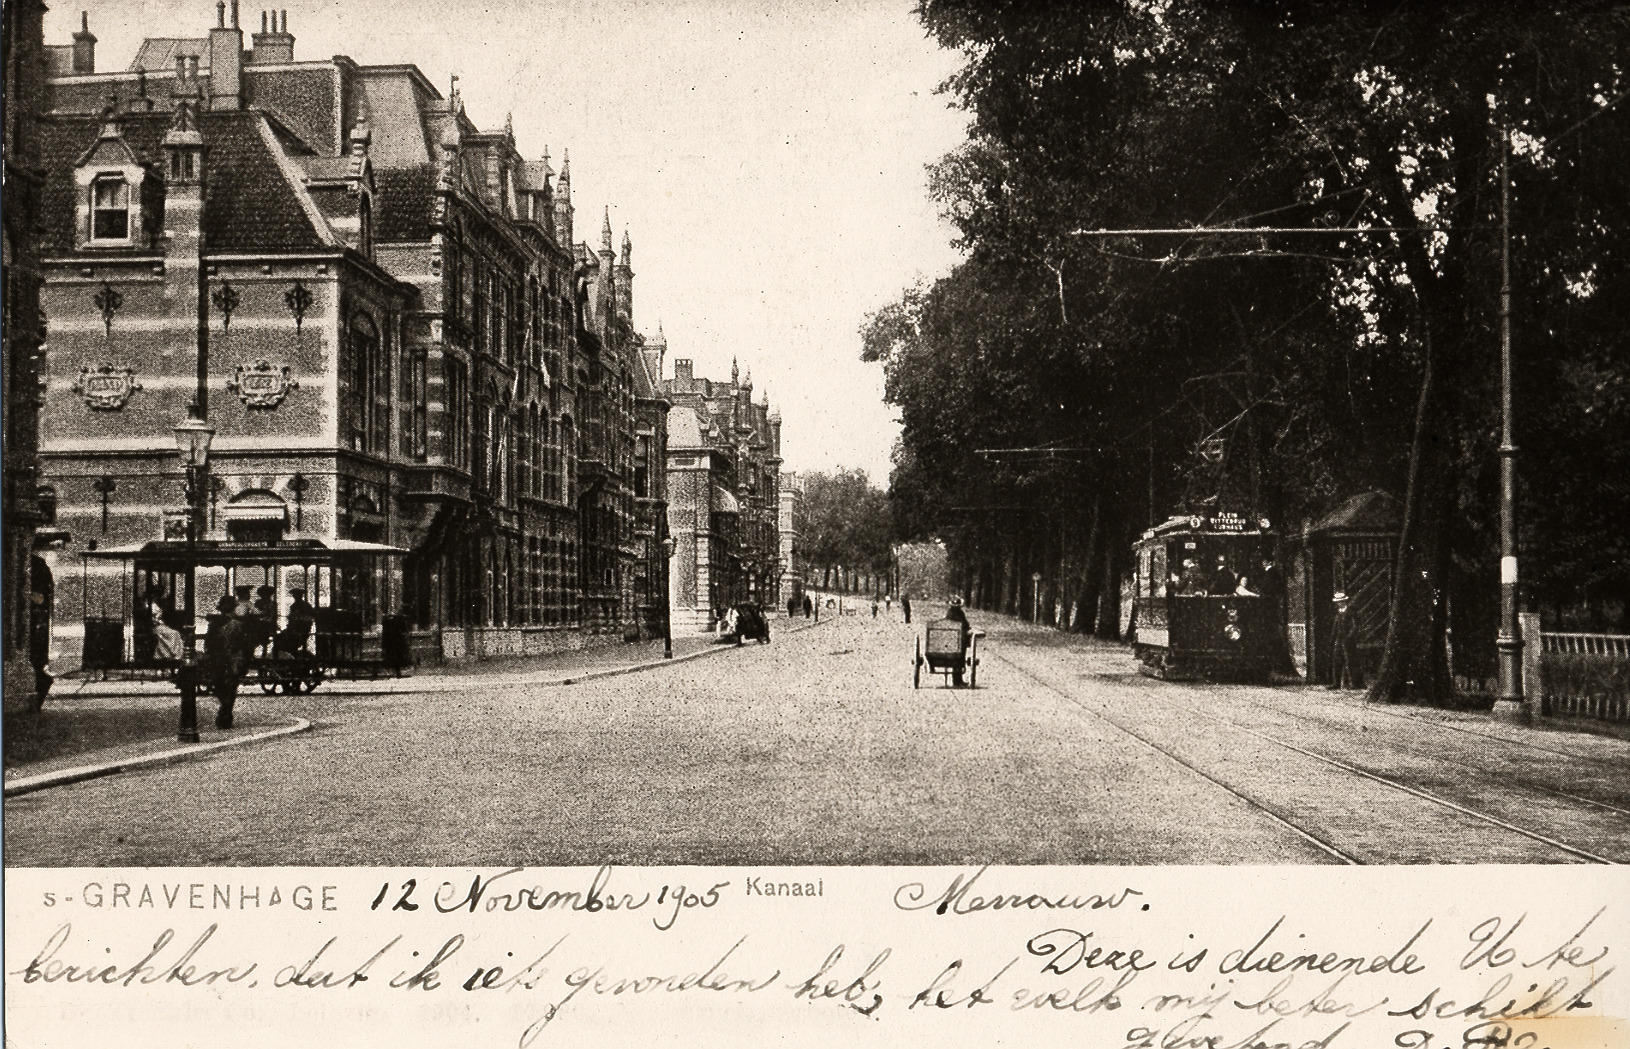 PLEIN
WITTEBRUG
KURHAUS
s-GRAVENHAGE 12 November 1905 Kanaal Mevrouw.
Deze is dienende U te
berichten, dat ik iets gevonden heb, het welk mij beter schikt